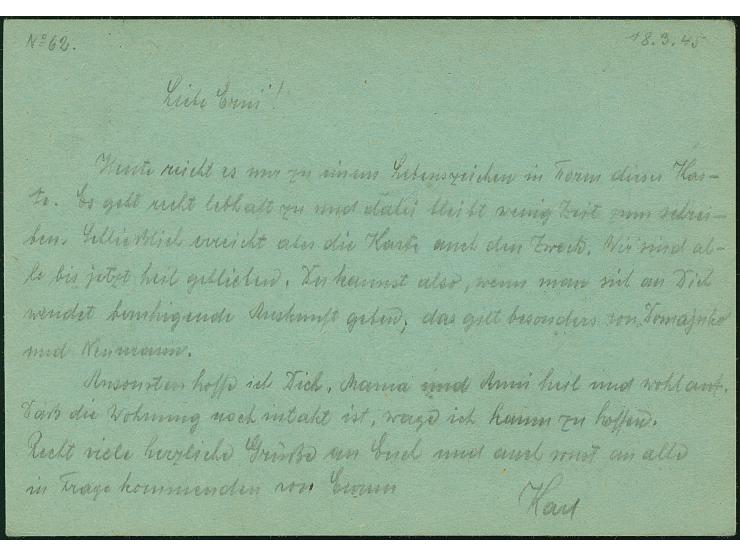 No 62.
18.3.45
Liebe Erni!
Heute reicht es nur zu einem Lebenszeichen in Form dieser Kar-
te. Es geht recht lebhaft zu und dabei bleibt wenig Zeit zum schrei-
ben. Schließlich erreicht aber die Karte auch den Zweck. Wir sind al-
le bis jetzt heil geblieben. Du kannst also, wenn man sich an Dich
wendet beruhigende Auskunft geben, das gilt besonders von
und Neumann.
Ansonsten hoffe ich Dich, Mama und Anni heil und wohlauf.
Daß die Wohnung noch intakt ist, wage ich kaum zu hoffen.
Recht viele herzliche Grüße an Euch und auch sonst an alle
in Frage kommenden von Eurem
Karl